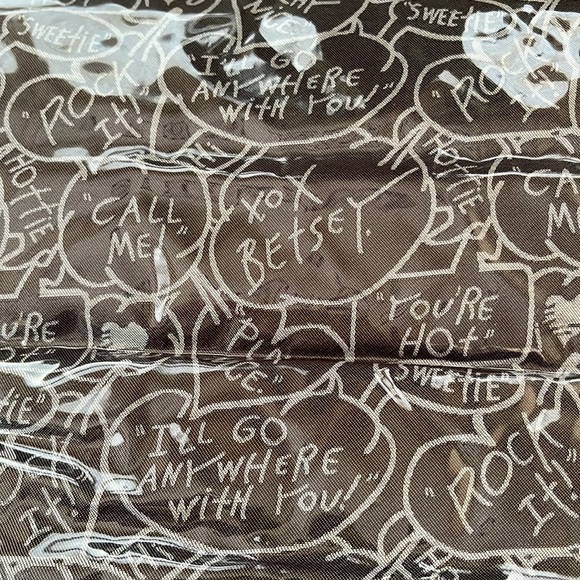 "SWEEtiE"
NiCE."
"SWEEtiE"
"I'LL GO
ANYWHERE
WitH YOU!"
"ROCK
It!"
"ROCK
HOttiE
"CALL
ME."
XOX
BEtSEY.
HOttiE
"CA
ME
U'RE
"YOU'RE
HOt"
tiE"
"SWEEtiE"
"I'LL GO
ANYWHERE
WitH YOU!"
It!
"ROCK
It!